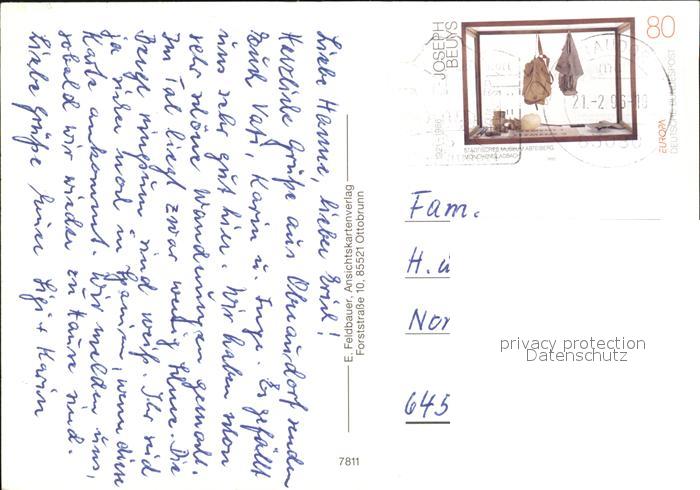 Liebe Hanne, lieber Erich!
Herzliche Grüße aus Oberaudorf senden
Euch Vati, Karin u. Inge. Es gefällt
uns sehr gut hier. Wir haben schon
sehr schöne Wanderungen gemacht.
Im Tal liegt zwar wenig Schnee. Die
Berge ringsum sind weiß. Ihr seid
ja sicher noch in Spanien, wenn diese
Karte ankommt. Wir melden uns,
sobald wir wieder zu Hause sind.
Liebe Grüße Eure Sigi + Karin
E. Feldbauer, Ansichtskartenverlag
Forststraße 10, 85521 Ottobrunn
7811
JOSEPH
BEUYS
1921-1986
80
STÄDTISCHES MUSEUM ABTEIBERG
MÖNCHENGLADBACH
EUROPA
DEUTSCHE BUNDESPOST
21.-2.96-10
83080
Fam.
H. u
Nor
645
privacy protection
Datenschutz